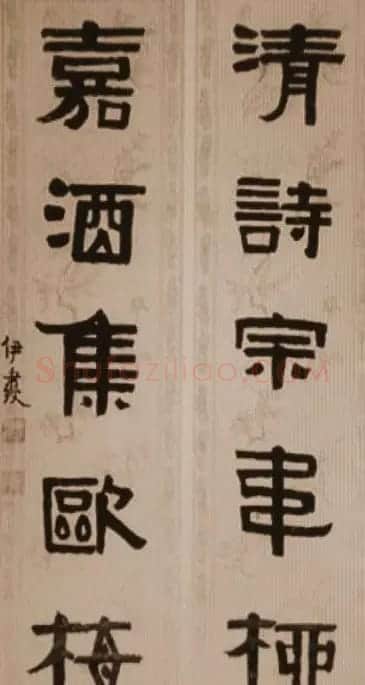 清詩宗韋柳
嘉酒集歐梅
伊秉綬
Shufaziliao.COM